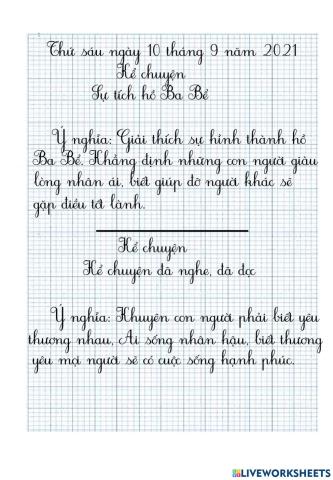 Thứ sáu ngày 10 tháng 9 năm 2021
Kể chuyện
Sự tích hồ Ba Bể
Ý nghĩa: Giải thích sự hình thành hồ
Ba Bể. Khẳng định những con người giàu
lòng nhân ái, biết giúp đỡ người khác sẽ
gặp điều tốt lành.
Kể chuyện
Kể chuyện đã nghe, đã đọc
Ý nghĩa: Khuyên con người phải biết yêu
thương nhau, Ai sống nhân hậu, biết thương
yêu mọi người sẽ có cuộc sống hạnh phúc.
LIVEWORKSHEETS